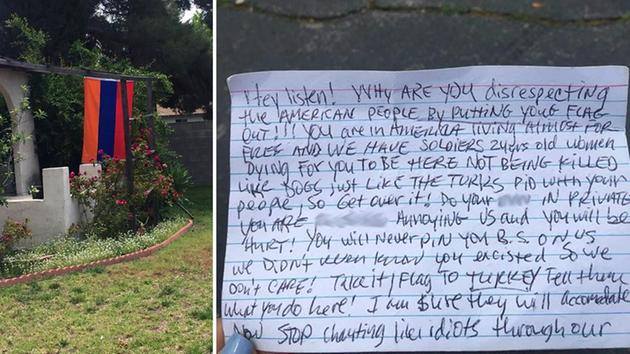 Hey listen! WHY ARE YOU disrespecting
the AMERICAN PEOPLE BY PUTTING YOUR FLAG
OUT!!! YOU ARE IN AMERICA LIVING ALMOST FOR
FREE AND WE HAVE SOLDIERS 24years old women
DYING FOR YOU TO BE HERE NOT BEING KILLED
LIKE DOGS just LIKE THE TURKS DID WITH your
people, so Get over it! Do your IN PRIVATE
YOU ARE Annoying US and you will be
HURT! YOU will Never PIN YOU B.S. ON US
we DIDN'T even know you excisted So we
DON'T CARE! Take it/FLAG TO TURKEY Tell them
what you do here! I am sure they will accomodate
NOW STOP chanting like idiots through our